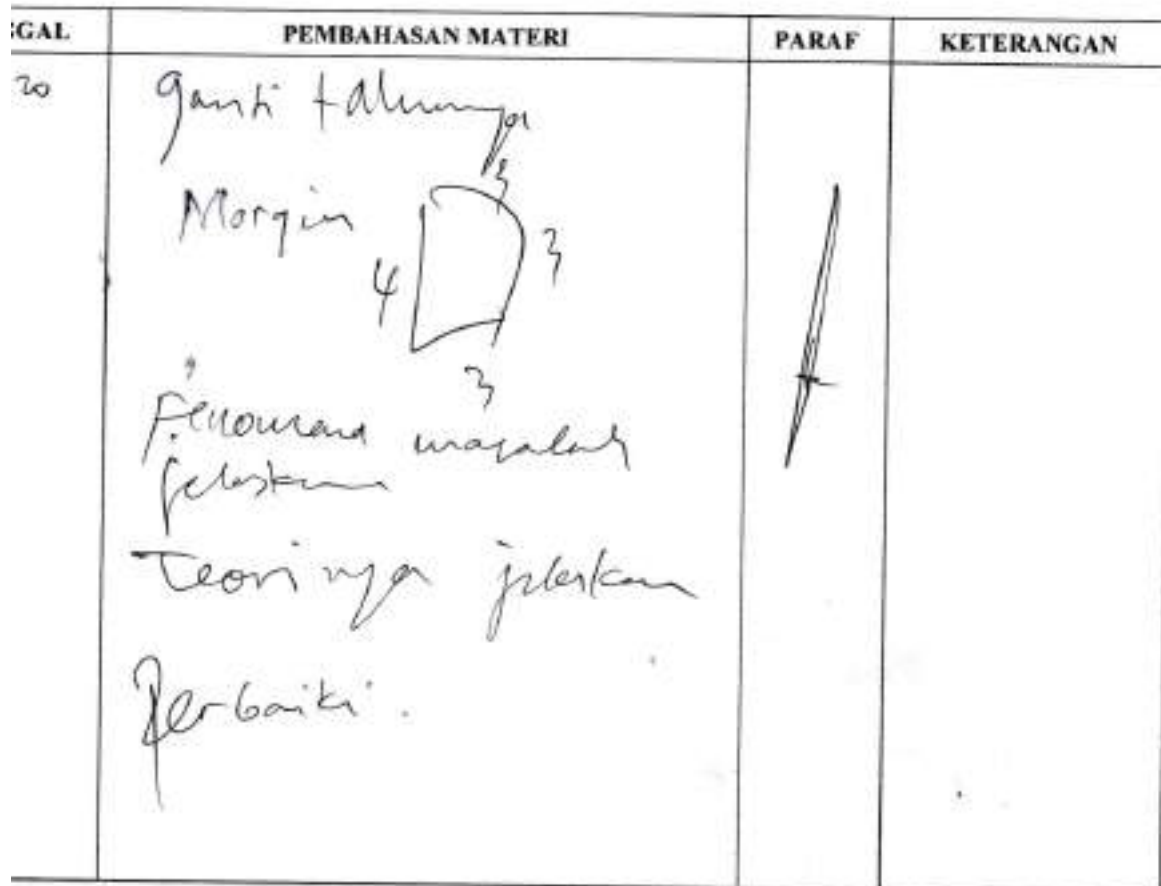 GGAL PEMBAHASAN MATERI PARAF KETERANGAN
20 ganti tahunnya
3
Margin
3
4
3
Fenomena masalah
jelaskan
Teorinya jelaskan
Perbaiki.